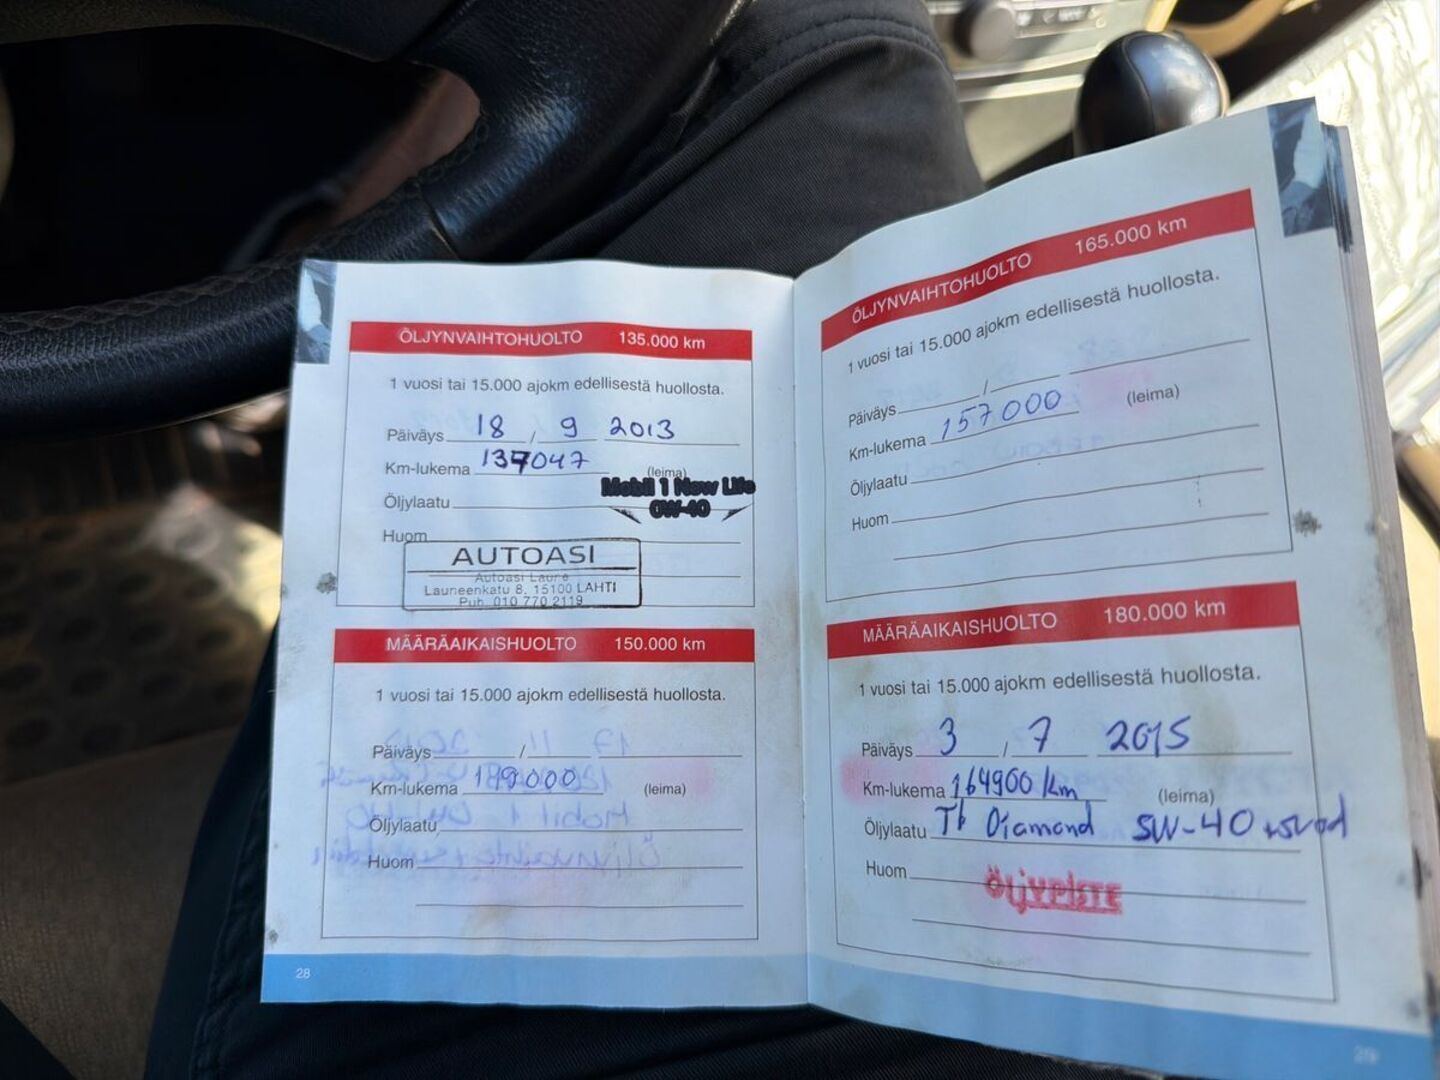 ÖLJYNVAIHTOHUOLTO 135.000 km
1 vuosi tai 15.000 ajokm edellisestä huollosta.
Päiväys 18 / 9 2013
Km-lukema 137047 (leima)
Öljylaatu Mobil 1 New Life
0W-40
Huom
AUTOASI
Launeenkatu 8, 15100 LAHTI
Puh. 010 770 2119
MÄÄRÄAIKAISHUOLTO 150.000 km
1 vuosi tai 15.000 ajokm edellisestä huollosta.
Päiväys /
Km-lukema 149000 (leima)
Öljylaatu
Huom
28
ÖLJYNVAIHTOHUOLTO 165.000 km
1 vuosi tai 15.000 ajokm edellisestä huollosta.
Päiväys /
Km-lukema 157000 (leima)
Öljylaatu
Huom
MÄÄRÄAIKAISHUOLTO 180.000 km
1 vuosi tai 15.000 ajokm edellisestä huollosta.
Päiväys 3 / 7 2015
Km-lukema 164900 km (leima)
Öljylaatu Diamond 5W-40
Huom
ÖljYPiSTE
29